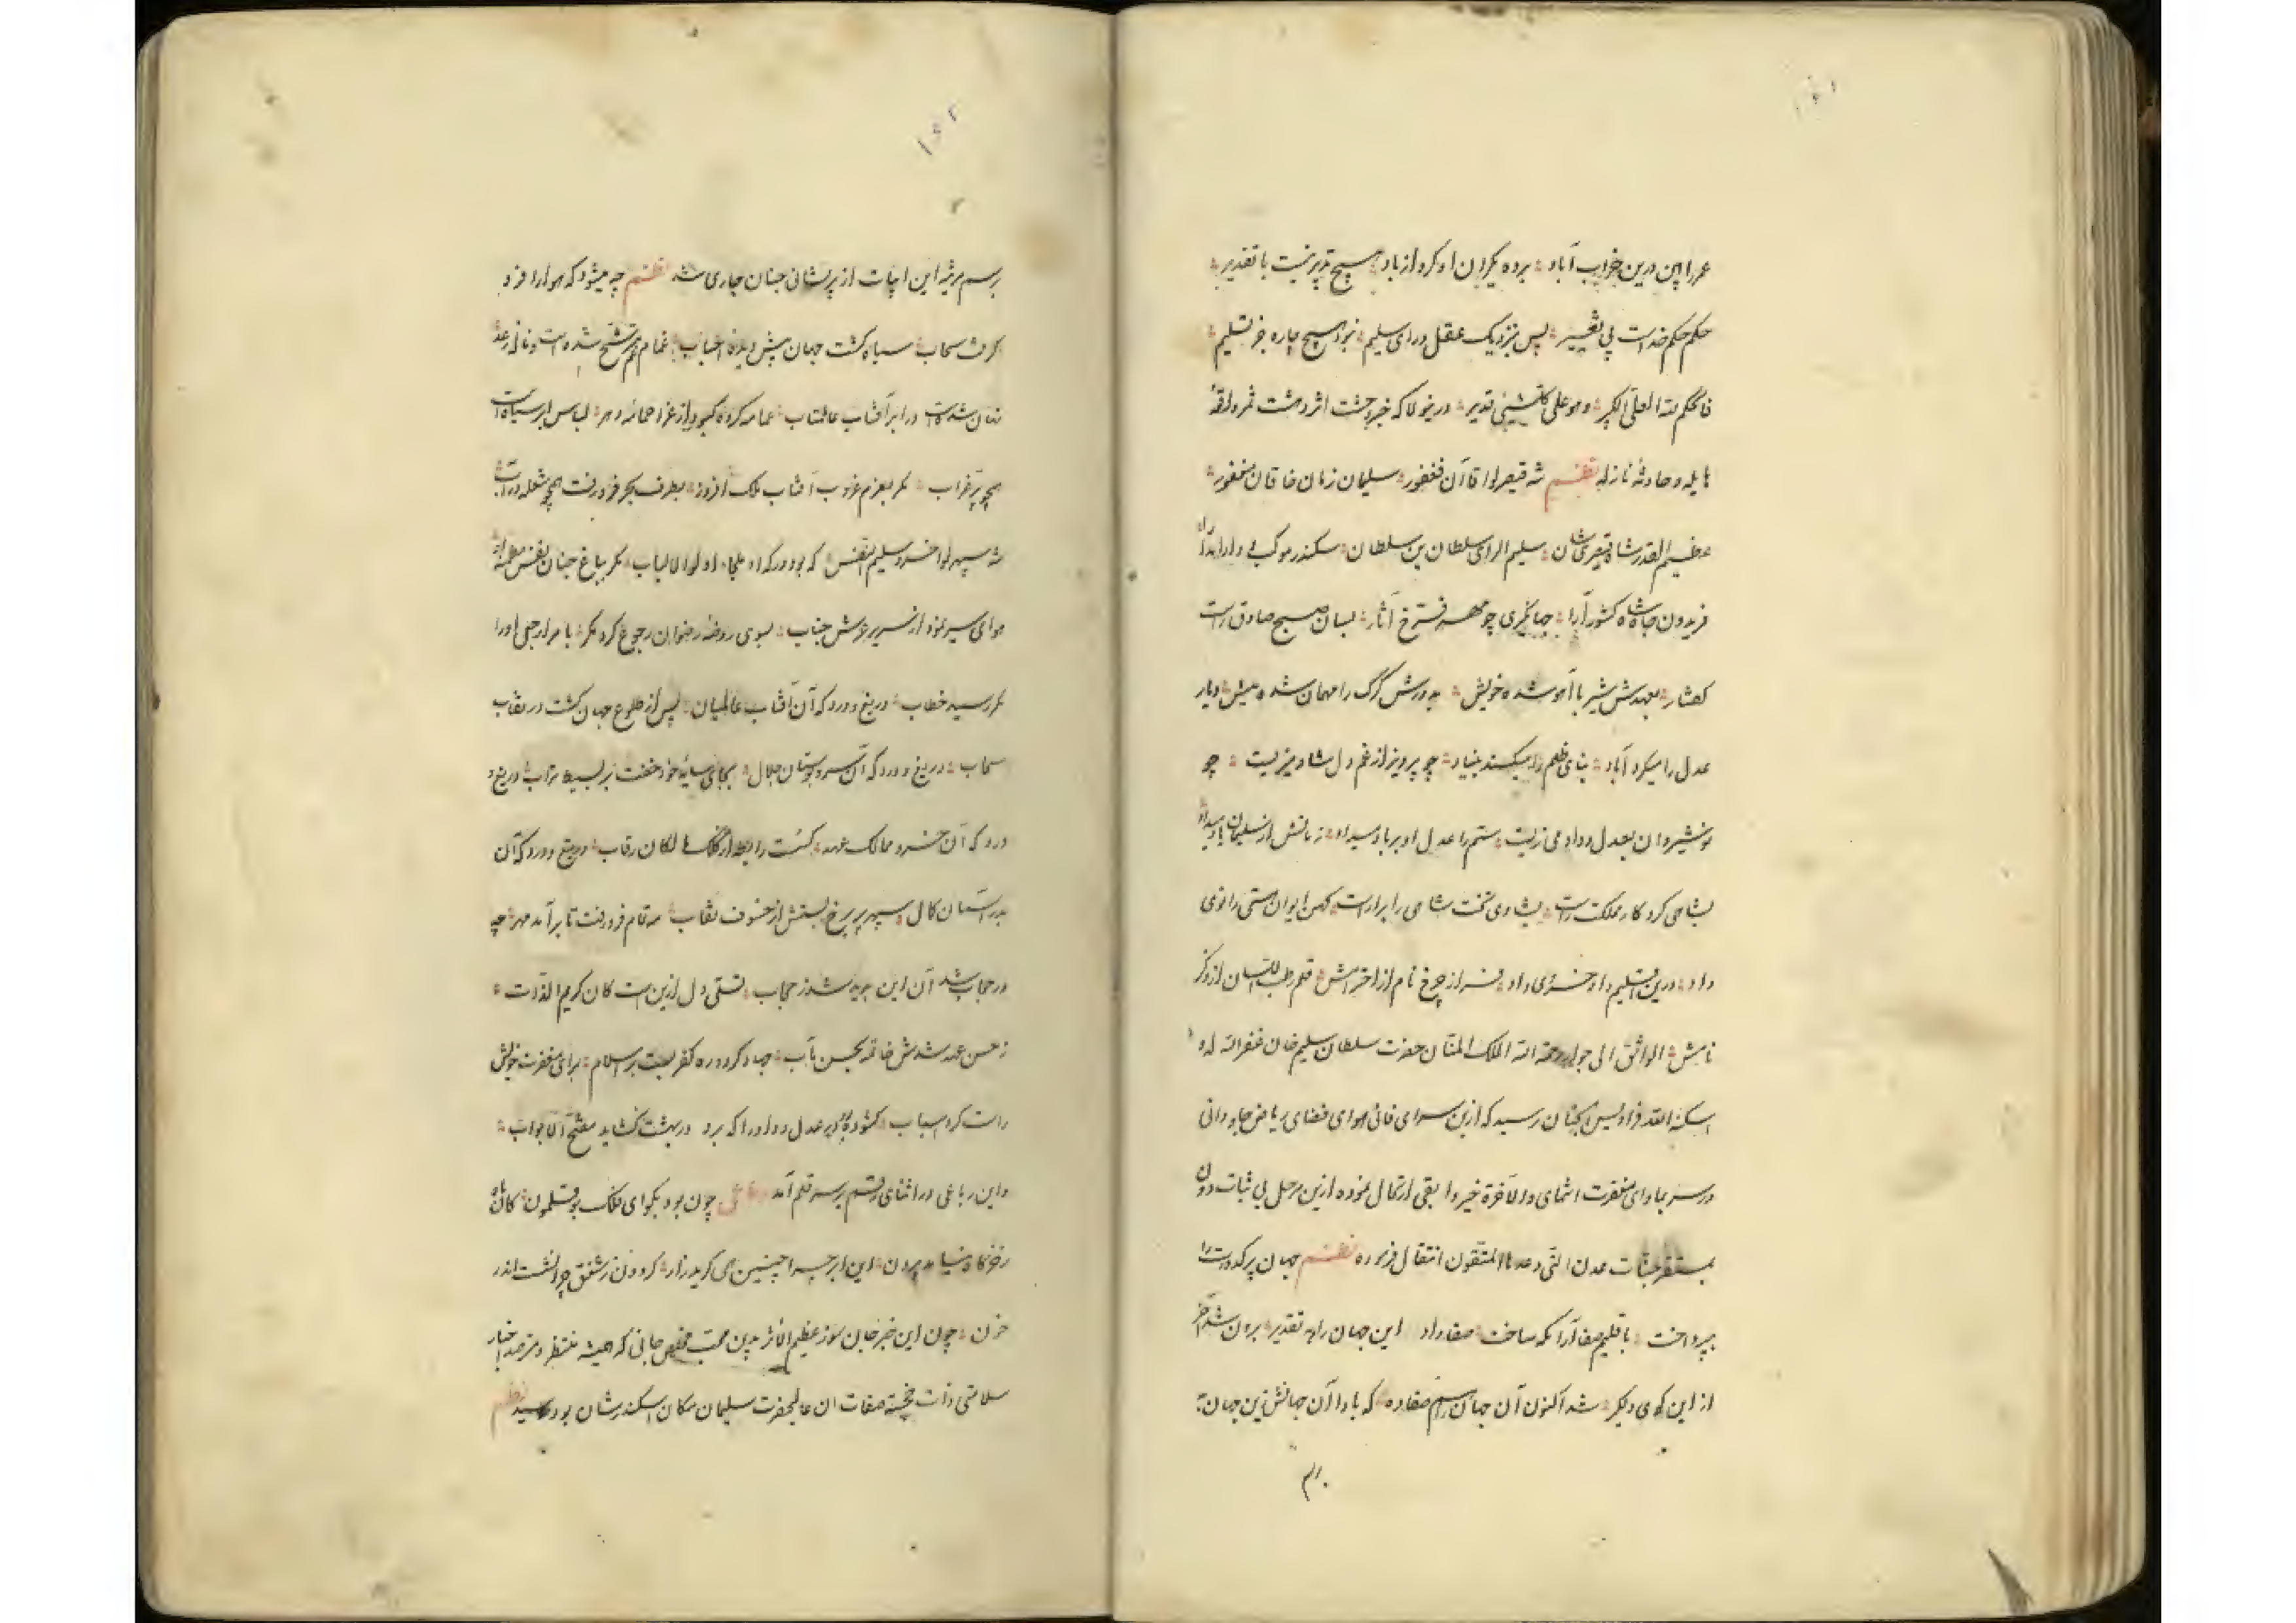 عمر را بین درین خراب آباد برده یکران او کرو از باد هیچ تدبیر نیست با تقدیر
حکم حکم خداست بی تغییر پس بنزدیک عقل و رای سلیم نبود هیچ چاره جز تسلیم
فالحکم لله العلی الکبیر وهو علی کل شیئی قدیر درینولا که خبر وحشت اثر دهشت ثمر واقعهٔ
هایله و حادثهٔ نازله نظم شه قیصر لوا قاآن فغفور سلیمان زمان خاقان مغفور
عظیم القدر شاه قیصری شان سلیم الرای سلطان بن سلطان سکندر موکبی دارا
فریدون جاه شاه کشور آرا جهانگیری چو مهر فرخ آثار بسان صبح صادق راست
گفتار بعهدش شیر با آهو شده خویش بدورش گرگ را مهمان شده میش دیار
عدل را میکرد آباد بنای ظلم را میکند بنیاد چو پرویز از غم دل شاد میزیست چو
نوشیروان بعدل و داد می زیست ستم را عدل او بر باد میداد زمانش از سلیمان یاد میداد
بشاهی کرد کار مملکت راست بشادی تخت شاهی را بیاراست کهن ایوان هستی را نوی
داد درین اقلیم داد خسروی داد فراز چرخ نام از اخترامش قلم رطب اللسان از ذکر
نامش الواثق الی جوار رحمة الله الملک المنان حضرت سلطان سلیم خان غفر الله له و
اسکنه الله فرادیس الجنان رسید که ازین سرای فانی هوای فضای ریاض جاودانی
در سر بماوای مغفرت انتمای والآخرة خیر وابقی ارتحال نموده ازین مرحل بی ثبات دون
بمستقر جنات عدن التی وعدها المتقون انتقال فرموده نظم جهان پر کدورت را
بپرداخت باقلیم صفا آرامگه ساخت صفا داد این جهان را به تقدیر برون شد آخر
از این کهی دلگیر شه اکنون آن جهان را هم صفا ده که باد آن جهانش زین جهان به
برسم
برسم مرثیه این ابیات از پریشانی جنان جاری شد نظم چه میشود که هوا را فرو
گرفت سحاب سیاه گشت جهان پیش دیدهٔ احباب غمام غم مترشح شده است و ناله رعد
نهان شدست در ابر آفتاب عالمتاب عمامه کرده کبود از عزا حمامهٔ دهر لباس ابر سیاه است
همچو پر غراب مگر بعزم غروب آفتاب ملک افروز بطرف بحر فرو رفت همچو شعله در آب
شه سپهر لوا خسرو سلیم النفس که بود درگه او ملجاء اولوا الالباب مگر بباغ جنان نفس مطمئنهٔ او
هوای سیر نمود از سریر عرش جناب بسوی روضه رضوان رجوع کرد مگر بامر ارجعی او را
مگر رسید خطاب دریغ و درد که آن آفتاب عالمیان پس از طلوع جهان گشت در نقاب
سحاب دریغ و درد که آن سرو بوستان جلال بجای سایهٔ خود خفت بر بسیط تراب دریغ و
درد که آن خسرو ممالک عهد گسست رابطه از ملک مالکان رقاب دریغ و درد که آن
بدر آسمان کمال سپهر پیر برخ بستش از خسوف نقاب مه تمام فرو رفت تا برآمد مهر چه
در حجاب شد آن این پدید شد ز حجاب تسلی دل ازین است کان کریم الذات
ز حسن عهد شدش خاتمه بحسن مآب جهاد کرد و ره کفر بست بر اسلام برای مغفرت خویش
راست کرد اسباب گشوده بود در عدل و داد او را که برد در بهشت گشاید مفتح الابواب
و این رباعی در اثنای رقم بر سر قلم آمد رباعی چون بود بگو ای فلک بوقلمون کان شاه
ز خرگاه نیامد بیرون این ابر چرا چنین همی گرید زار گردون ز شفق چرا نشست اندر
خون چون این خبر جان سوز عظیم الاثر بدین محب مخلص جانی که همیشه منتظر و مترصد اخبار
سلامتی ذات خجسته صفات آن عالیحضرت سلیمان مکان اسکندر شان بود رسید نظم